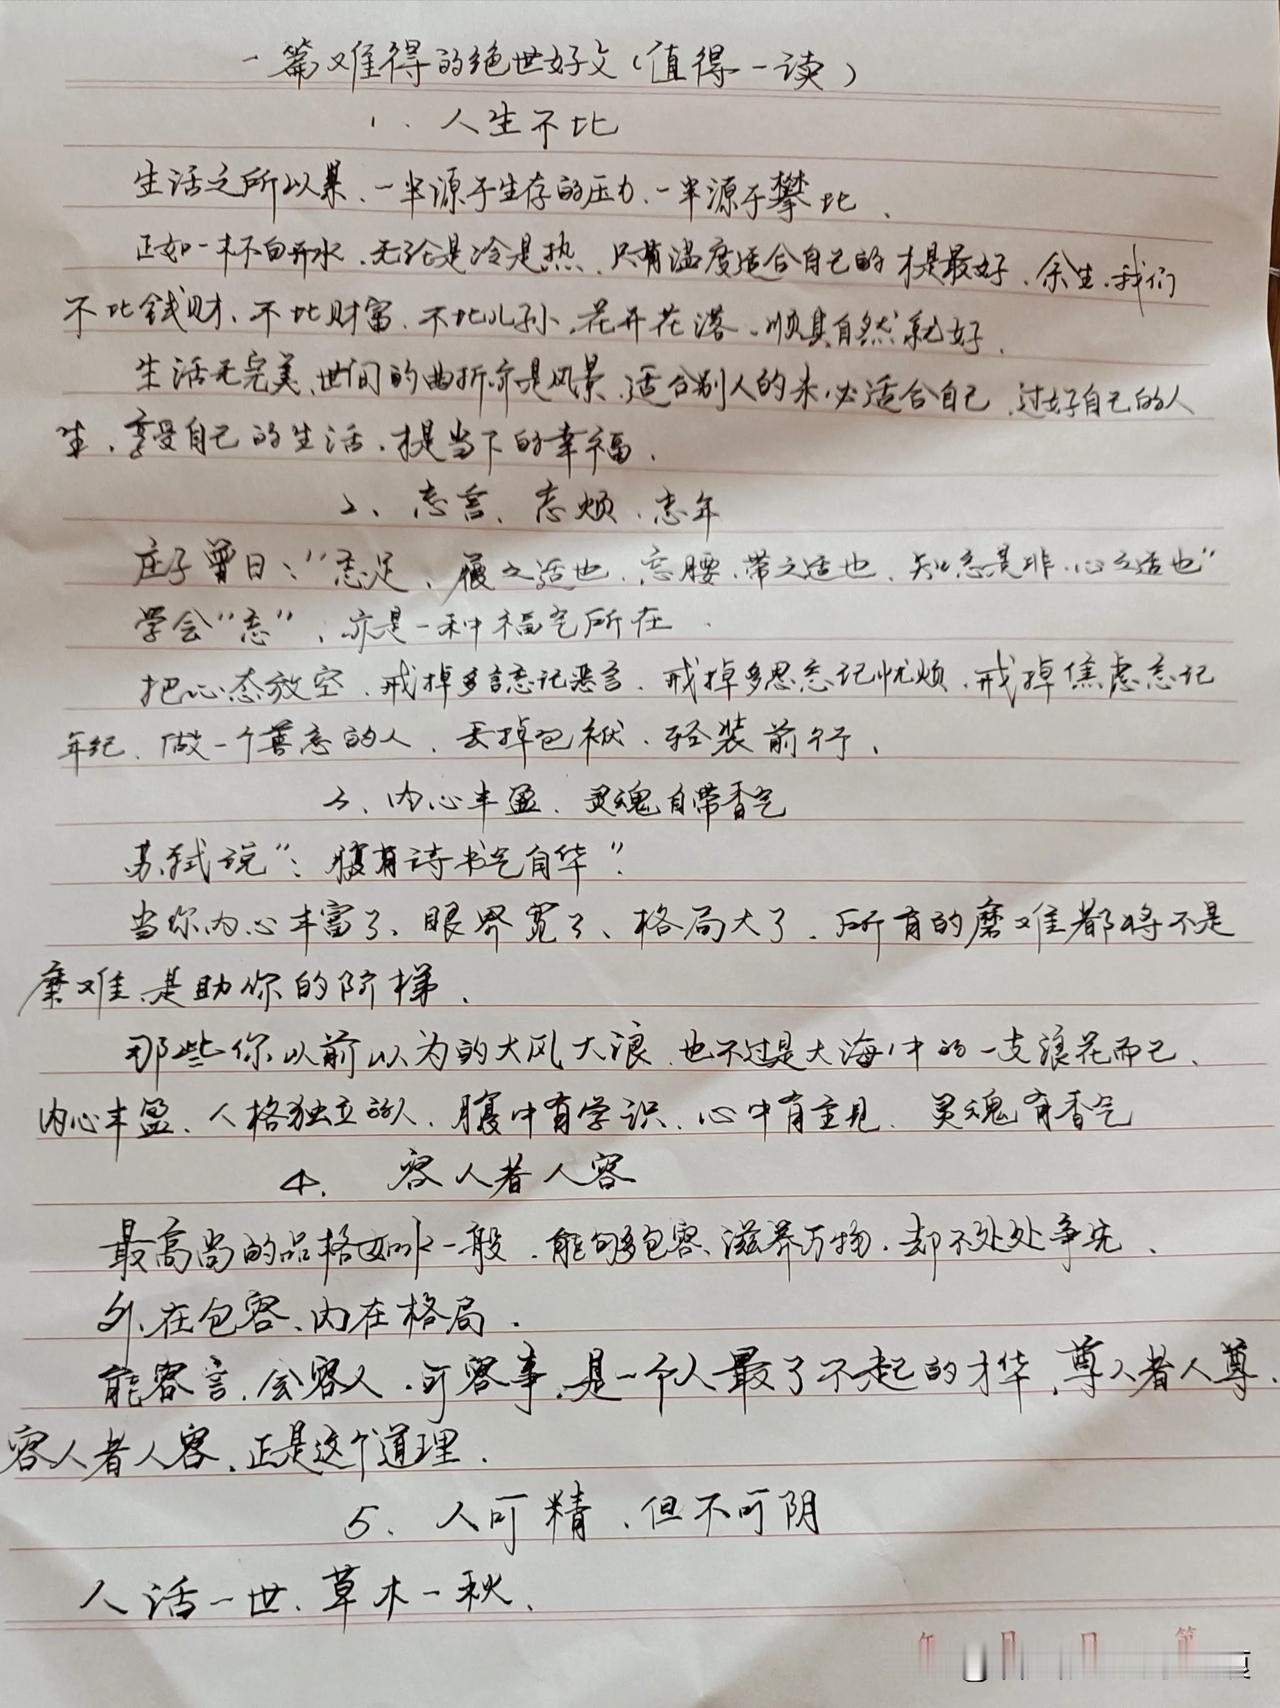 一篇难得的绝世好文(值得一读)
1、人生不比
生活之所以累、一半源于生存的压力、一半源于攀比、
正如一杯白开水、无论是冷是热、只有温度适合自己的才是最好、余生、我们
不比钱财、不比财富、不比儿孙、花开花落、顺其自然就好、
生活无完美、世间的曲折亦是风景、适合别人的未必适合自己、过好自己的人
生、享受自己的生活、才是当下的幸福、
2、忘言、忘烦、忘年
庄子曾曰:“忘足、履之适也、忘腰、带之适也、知忘是非、心之适也”
学会“忘”、亦是一种福气所在、
把心态放空、戒掉多言忘记恶言、戒掉多思忘记忧烦、戒掉焦虑忘记
年纪、做一个善忘的人、丢掉包袱、轻装前行、
3、内心丰盈、灵魂自带香气
苏轼说“:腹有诗书气自华”.
当你内心丰富了、眼界宽了、格局大了、所有的磨难都将不是
磨难、是助你的阶梯、
那些你以前以为的大风大浪、也不过是大海中的一支浪花而已、
内心丰盈、人格独立的人、腹中有学识、心中有主见、灵魂有香气
4、容人者人容
最高尚的品格如水一般、能够包容、滋养万物、却不处处争先、
外在包容、内在格局、
能容言、会容人、可容事、是一个人最了不起的才华、尊人者人尊、
容人者人容、正是这个道理、
5、人可精、但不可阴
人活一世、草木一秋、
年 月 日 第 页